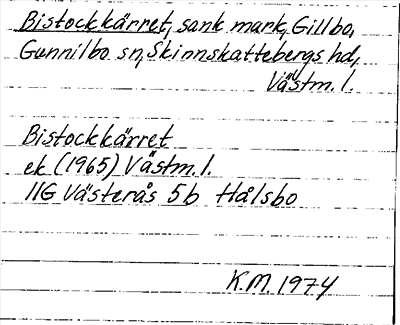 Bistockkärret, sank mark, Gillbo,
Gunnilbo sn, Skinnskattebergs hd,
Västm. l.
Bistockkärret
ek (1965) Västm. l.
11G Västerås 5b Hålsbo
K.M. 1974